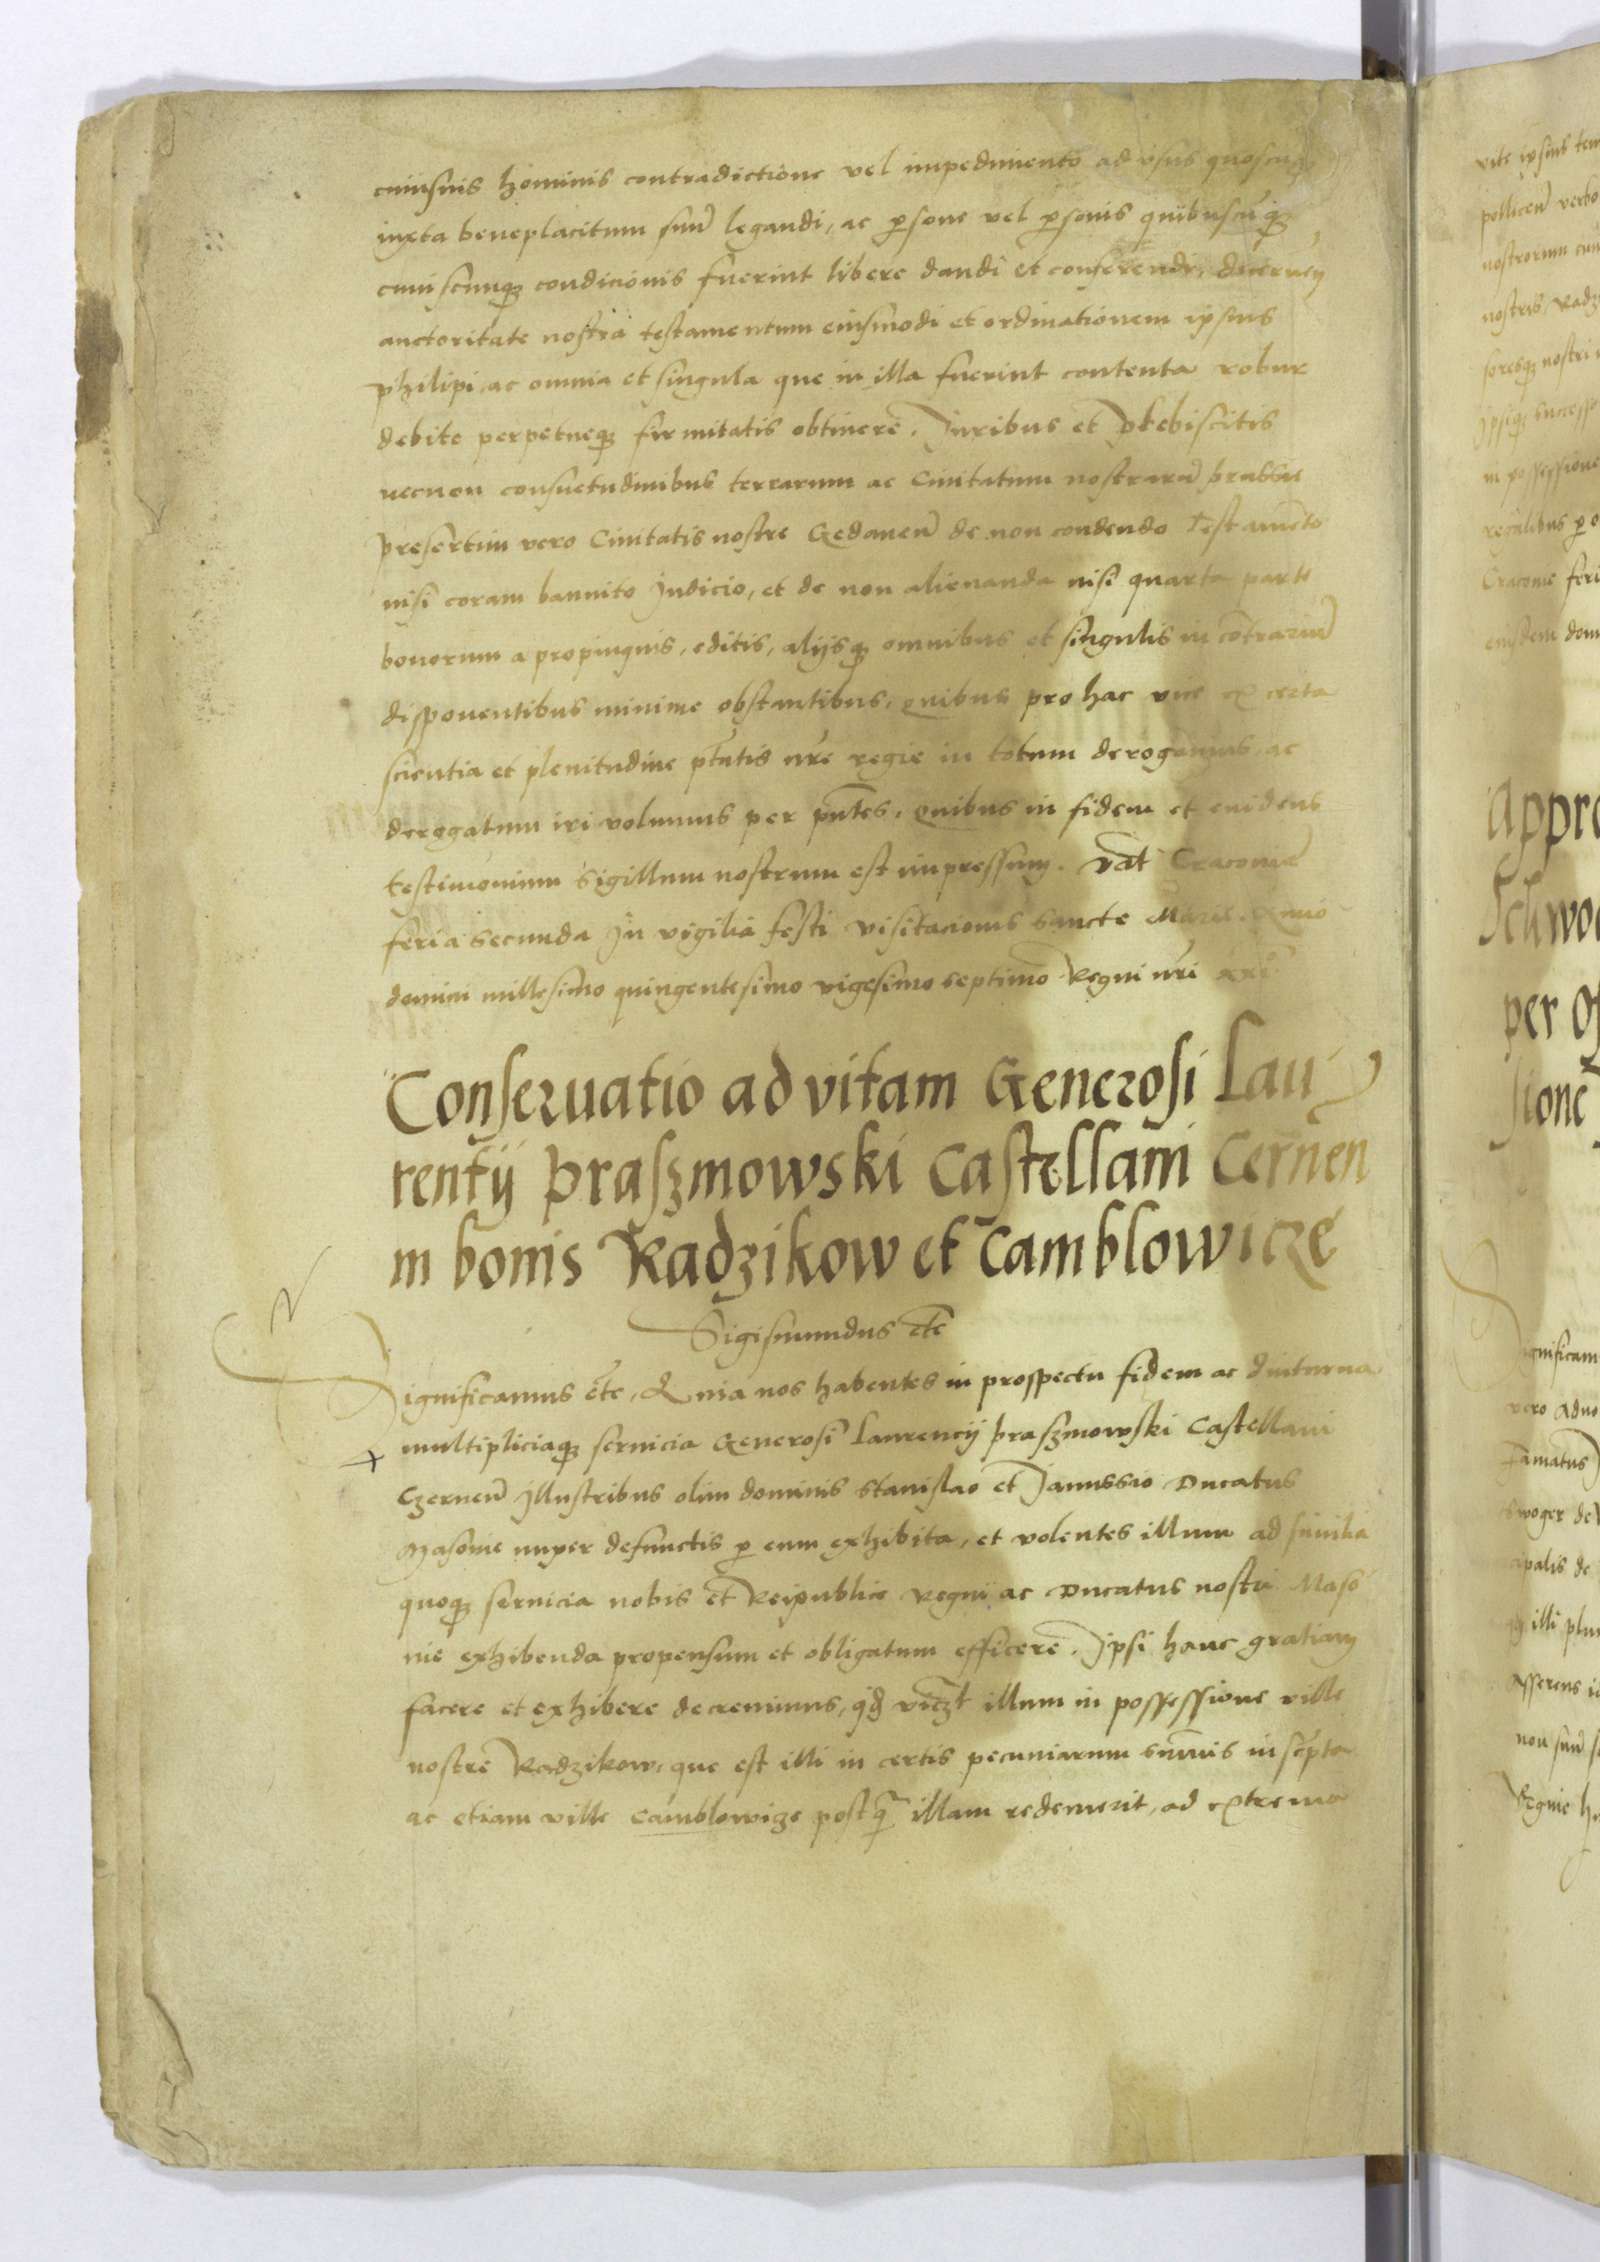 cuiusuis hominis contradictione vel impedimento ad vsus quoscuqȝ
iuxta beneplacitum suũ legandi, ac psone vel psonis quibuscũqȝ
cuiuscunqȝ condicionis fuerint libere dandi et conferendi, decernen
auctoritate nostra testamentum eiusmodi et ordinationem ipsius
philipi, ac omnia et singula que in illa fuerint contenta robur
debite perpetueqȝ firmitatis obtinere. Juribus et Plebiscitis
necnon consuetudinibus terrarum ac Ciuitatum nostrarũ prussie
presertim vero Ciuitatis nostre Gedaneñ de non condendo Testamẽto
nisi coram bannito Judicio, et de non alienanda nisi quarta parte
bonorum a propinquis, editis, alijsqȝ omnibus et singulis in cõtrariũ
disponentibus minime obstantibus, quibus pro hac vice ex certa
scientia et plenitudine ptãtis nrẽ regie in totum derogamus, ac
derogatum iri volumus per pñtes, quibus in fidem et euidens
testimonium Sigillum nostrum est impressum. Dat Cracouie
feria secunda In vigilia festi visitacionis sancte Marie. Anno
domini millesimo quingentesimo vigesimo septimo Regni nri xxi
Conseruatio ad vitam Generosi Lau
rentij Praszmowski Castellani Cernen
in bonis Radzikow et Camblowicze
Sigismundus etc
Significamus etc, Quia nos habentes in prospectu fidem ac diuturna
multipliciaqȝ seruicia Generosi Laurencij praszmowski Castellani
Czerneñ Illustribus olim dominis Stanislao et Janussio Ducatus
Masouie nuper defunctis p eum exhibita, et volentes illum ad similia
quoqȝ seruicia nobis et Reipublice regni ac Ducatus nostri Maso
uie exhibenda propensum et obligatum efficere. Ipsi hanc gratiam
facere et exhibere decreuimus, qđ viczt illum in possessione ville
nostre Radzikow, que est illi in certis pecuniarum sũmis inscpta
ac etiam ville Camblowize postq̃ illam redemerit, ad extrema
vite ipsius
nostrorum
nostris, Radz
soresqȝ nostri
Ipsiqȝ successo
in possessione
regalibus p
Cracouie feri
eiusdem dom
Appro
per
sione
significam
vero
Famatus
ipalis de
illi
Asserens
non suũ